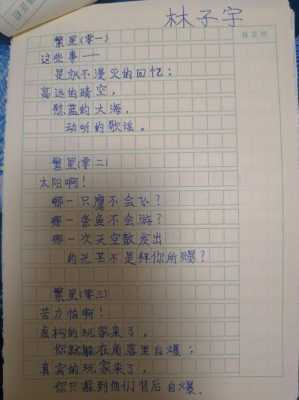 林子宇
繁星(零一)
这些事——
是永不漫灭的回忆；
高远的晴空，
慰蓝的大海，
动听的歌谣。
繁星(零二)
太阳啊！
哪一只鹰不会飞？
哪一条鱼不会游？
哪一次天空散发出
的光芒不是拜你所赐？
繁星(零三)
苦力怕啊！
虚构的玩家来了，
你就躲在角落里自爆；
真实的玩家来了，
你只敢到他们背后自爆。